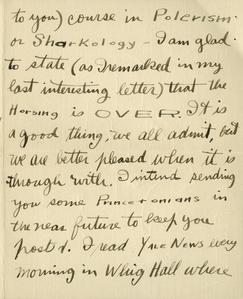 to you) course in Polerism
or Sharkology - I am glad
to state (as I remarked in my
last interesting letter) that the
Horsing is OVER. It is
a good thing, we all admit, but
we are better pleased when it is
through with. I intend sending
you some Princetonians in
the near future to keep you
posted. I read Yale News every
morning in Whig Hall where